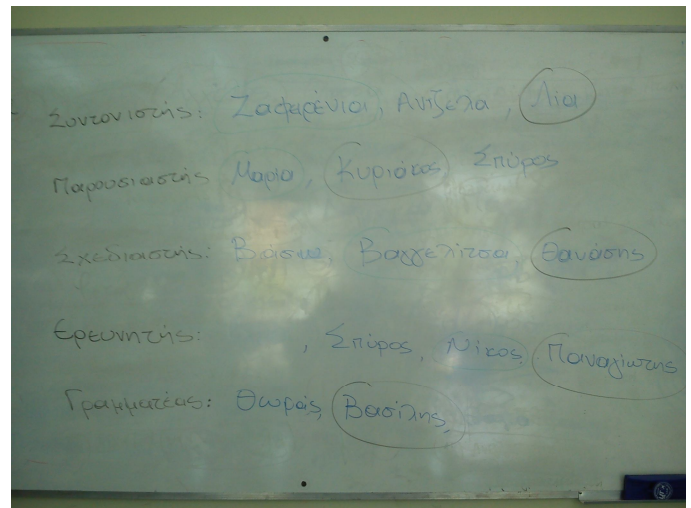 Συντονιστής: Ζαφειρένια, Αντζελα, Λία
Παρουσιαστής Μαρία, Κυριάκος Σπύρος
Σχεδιαστής: Βάσω, Βαγγελίτσα, Θανάσης
Ερευνητής: , Σπύρος, Νίκος, Παναγιώτης
Γραμματέας: Θωμαΐς, Βασίλης,